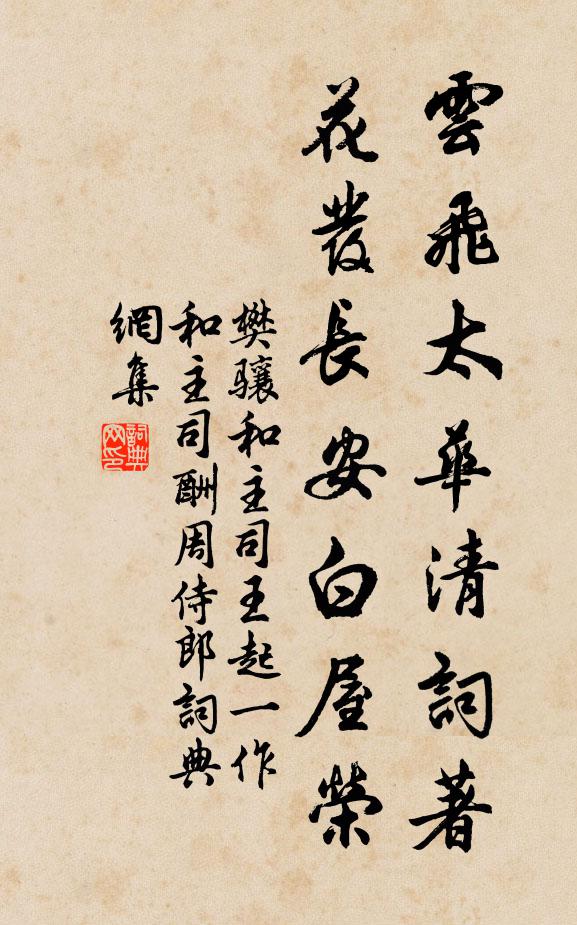 雲飛太華清詞著
花發長安白屋榮
樊驤和主司王起一作
和主司酬周侍郎詞典
網集
詞典
网印